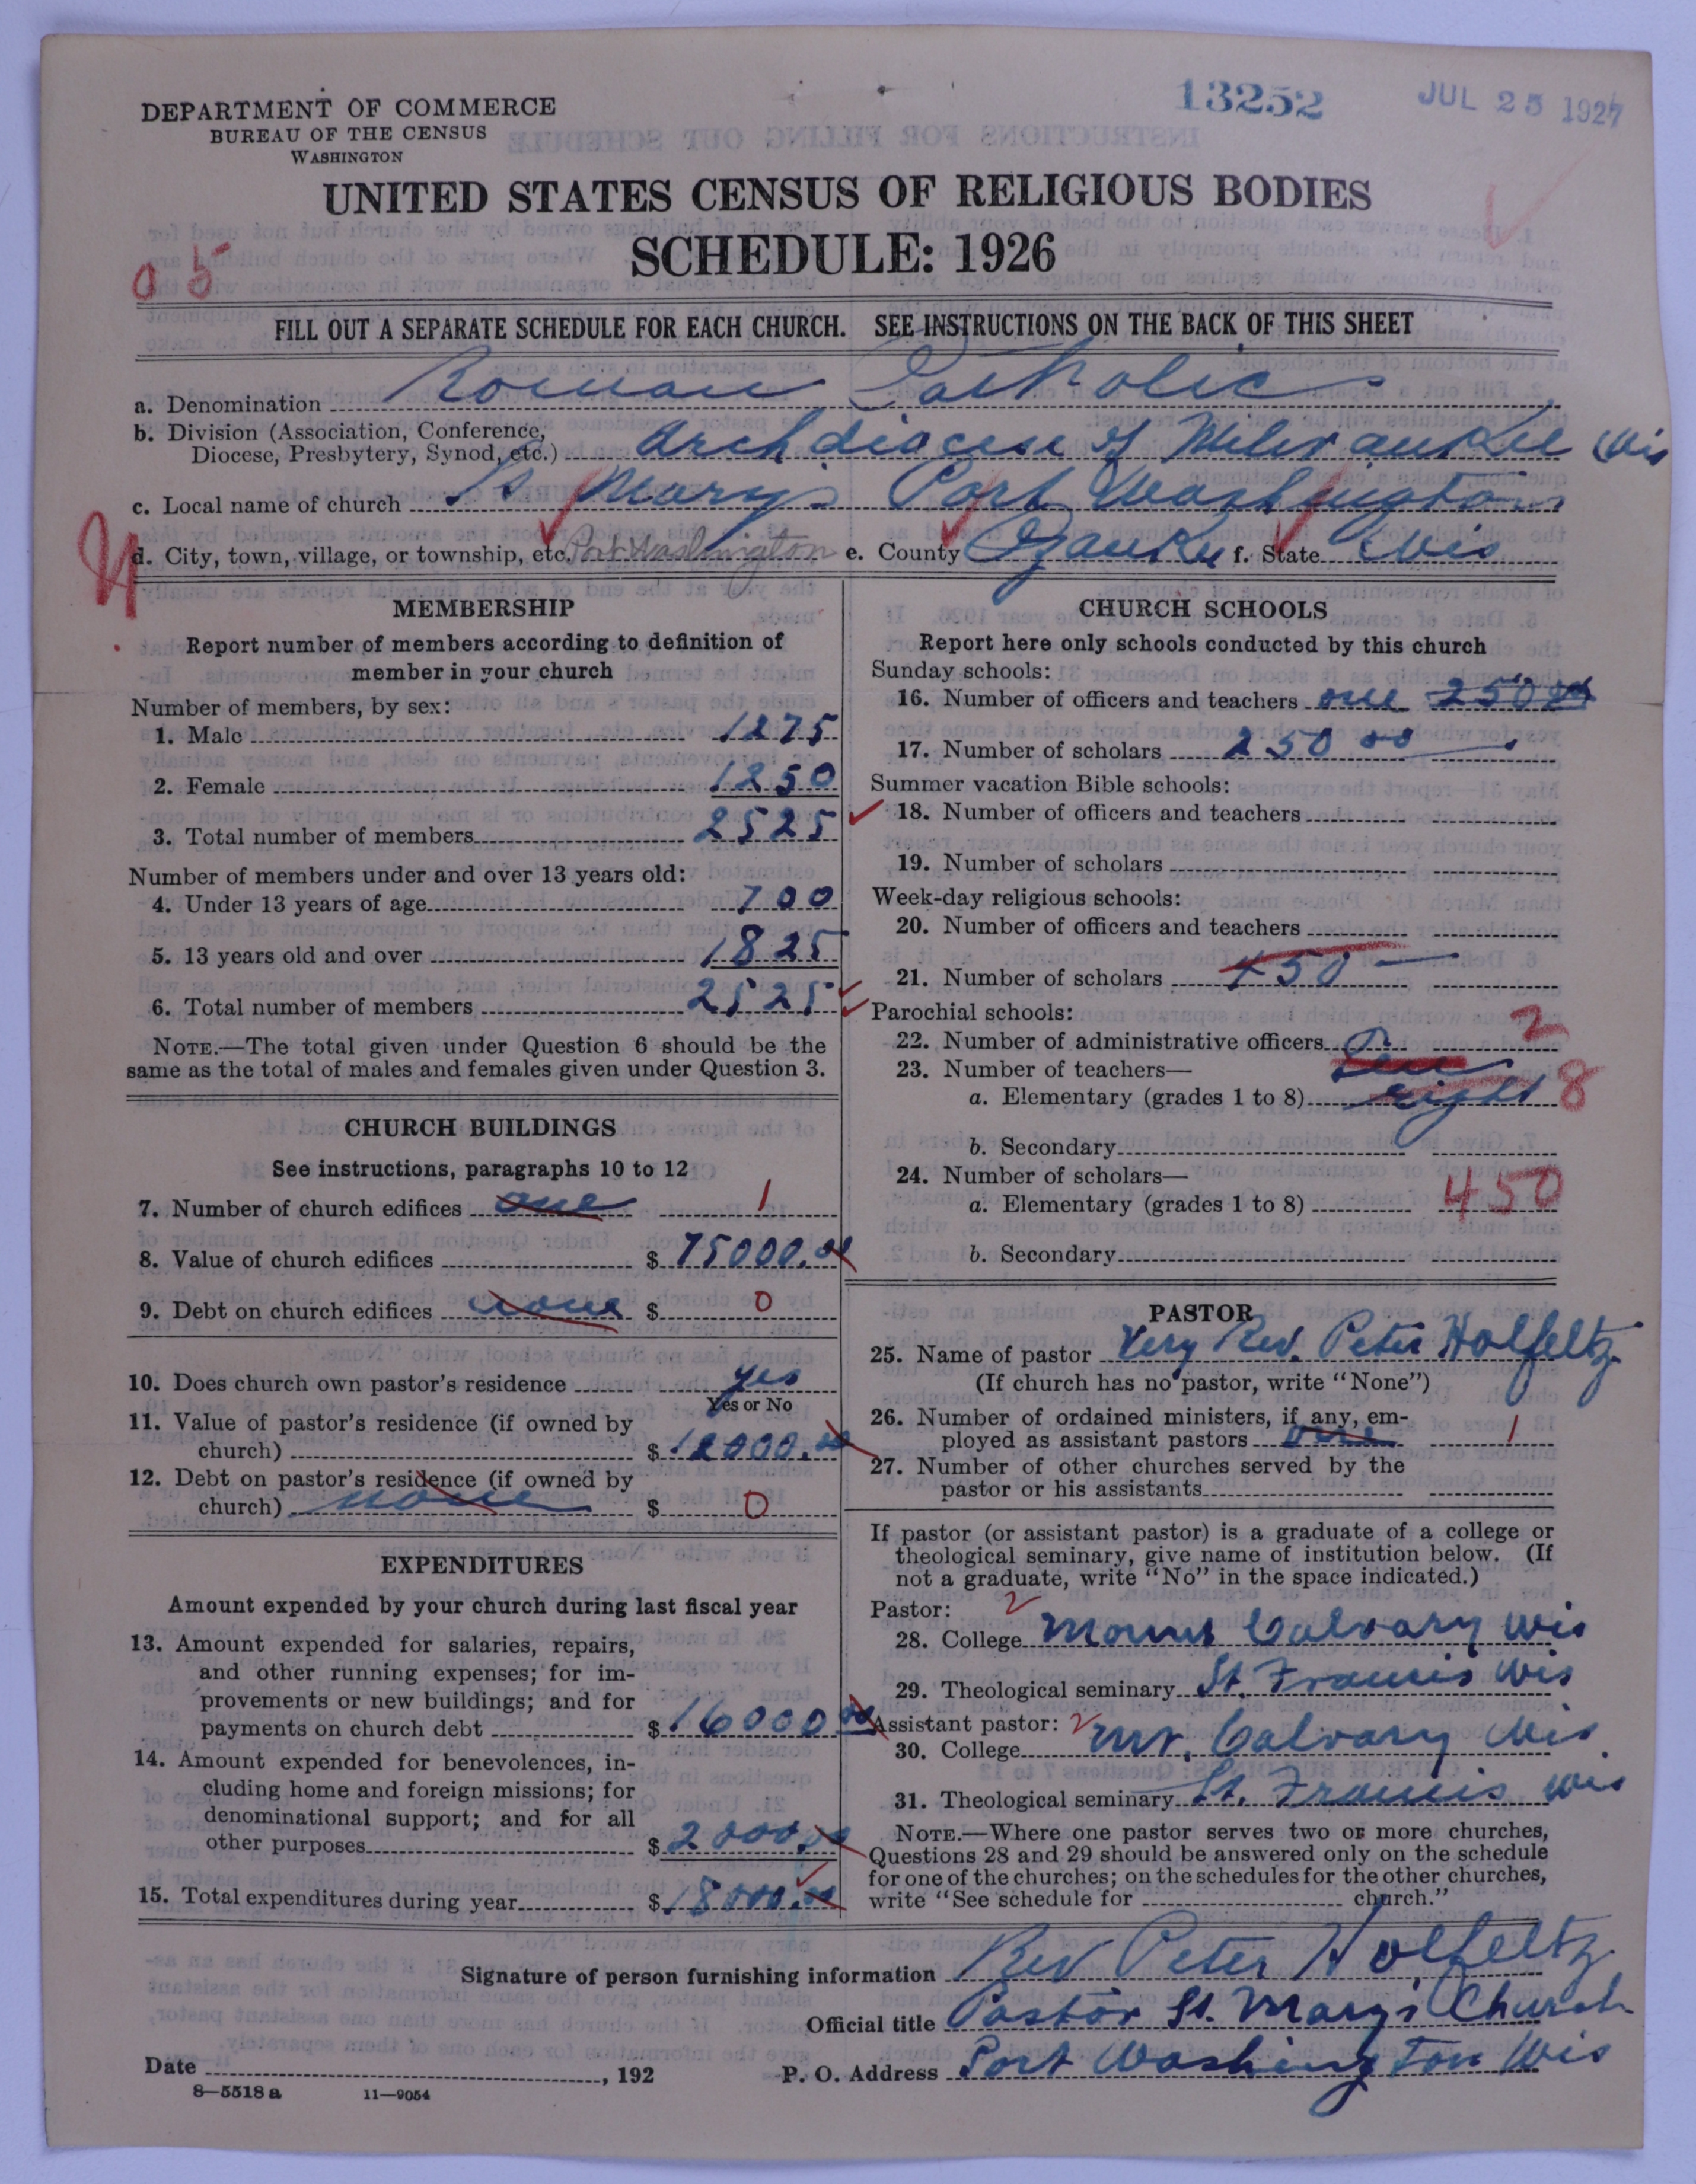 13252
JUL 25 1927
DEPARTMENT OF COMMERCE
BUREAU OF THE CENSUS
WASHINGTON
UNITED STATES CENSUS OF RELIGIOUS BODIES
SCHEDULE: 1926
FILL OUT A SEPARATE SCHEDULE FOR EACH CHURCH. SEE INSTRUCTIONS ON THE BACK OF THIS SHEET
a. Denomination Roman Catholic
b. Division (Association, Conference,
Diocese, Presbytery, Synod, etc.) Archdiocese of Milwaukee Wis
c. Local name of church St Marys Port Washington
d. City, town, village, or township, etc. Port Washington e. County Ozaukee f. State Wis
MEMBERSHIP
Report number of members according to definition of
member in your church
Number of members, by sex:
1. Male 1275
2. Female 1250
3. Total number of members 2525
Number of members under and over 13 years old:
4. Under 13 years of age 700
5. 13 years old and over 1825
6. Total number of members 2525
NOTE.—The total given under Question 6 should be the
same as the total of males and females given under Question 3.
CHURCH BUILDINGS
See instructions, paragraphs 10 to 12
7. Number of church edifices one 1
8. Value of church edifices $ 75000.00
9. Debt on church edifices none $ 0
10. Does church own pastor's residence yes
Yes or No
11. Value of pastor's residence (if owned by
church) $ 12000.00
12. Debt on pastor's residence (if owned by
church) none $ 0
EXPENDITURES
Amount expended by your church during last fiscal year
13. Amount expended for salaries, repairs,
and other running expenses; for im-
provements or new buildings; and for
payments on church debt $ 16000 00
14. Amount expended for benevolences, in-
cluding home and foreign missions; for
denominational support; and for all
other purposes $ 2000.00
15. Total expenditures during year $ 18000.00
CHURCH SCHOOLS
Report here only schools conducted by this church
Sunday schools:
16. Number of officers and teachers one 250
17. Number of scholars 250 00
Summer vacation Bible schools:
18. Number of officers and teachers
19. Number of scholars
Week-day religious schools:
20. Number of officers and teachers
21. Number of scholars 450
Parochial schools:
22. Number of administrative officers 2
23. Number of teachers—
a. Elementary (grades 1 to 8) eight 8
b. Secondary
24. Number of scholars—
a. Elementary (grades 1 to 8) 450
b. Secondary
PASTOR
25. Name of pastor Very Rev. Peter Holfeltz
(If church has no pastor, write "None")
26. Number of ordained ministers, if any, em-
ployed as assistant pastors one 1
27. Number of other churches served by the
pastor or his assistants
If pastor (or assistant pastor) is a graduate of a college or
theological seminary, give name of institution below. (If
not a graduate, write "No" in the space indicated.)
Pastor: 2
28. College Mount Calvary Wis
29. Theological seminary St. Francis Wis
Assistant pastor: 2
30. College Mt. Calvary Wis.
31. Theological seminary St. Francis Wis
NOTE.—Where one pastor serves two or more churches,
Questions 28 and 29 should be answered only on the schedule
for one of the churches; on the schedules for the other churches,
write "See schedule for church."
Signature of person furnishing information Rev Peter Holfeltz
Official title Pastor St. Mary's Church
Date , 192 P. O. Address Port Washington Wis
8—5518 a 11—9054